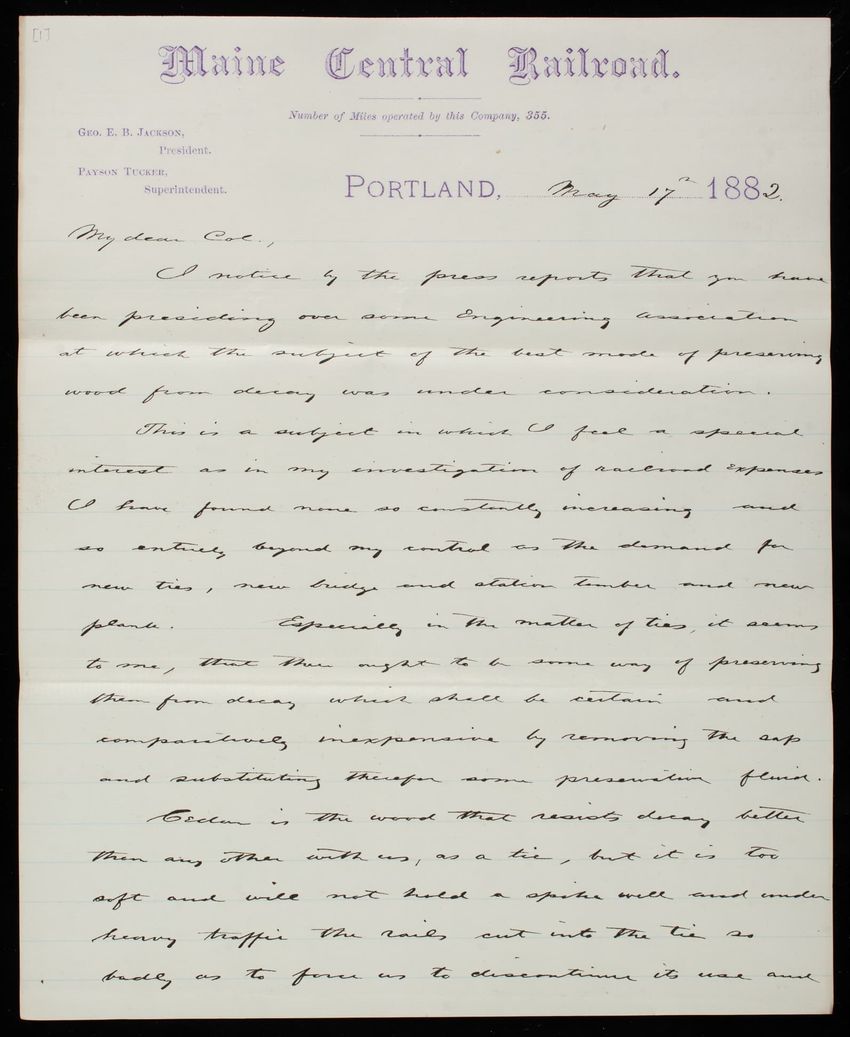 [1]
Maine Central Railroad.
Number of Miles operated by this Company, 355.
Geo. E. B. Jackson,
President.
Payson Tucker,
Superintendent.
Portland, May 17th 1882.
My dear Col.,
I notice by the press reports that you have
been presiding over some Engineering Association
at which the subject of the best mode of preserving
wood from decay was under consideration.
This is a subject in which I feel a special
interest as in my investigation of railroad expenses
I have found none so constantly increasing and
so entirely beyond my control as the demand for
new ties, new bridge and station timber and new
plank. Especially in the matter of ties, it seems
to me, that there ought to be some way of preserving
them from decay which shall be certain and
comparitively inexpensive by removing the sap
and substituting therefor some preservative fluid.
Cedar is the wood that resists decay better
than any other with us, as a tie, but it is too
soft and will not hold a spike well and under
heavy traffic the rails cut into the tie so
badly as to force us to discontinue its use and